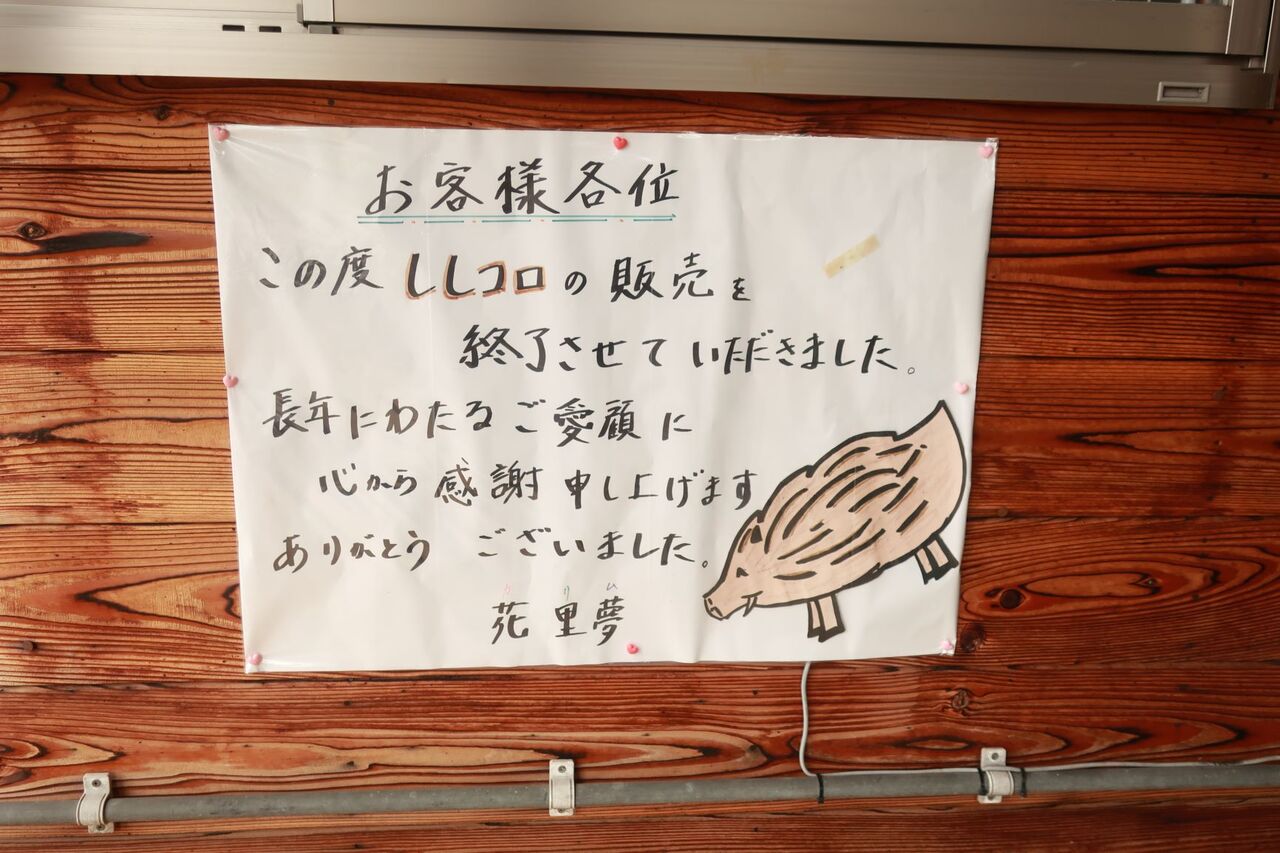 お客様各位
この度ししコロの販売を
終了させていただきました。
長年にわたるご愛顧に
心から感謝申し上げます
ありがとうございました。
カリム
花里夢